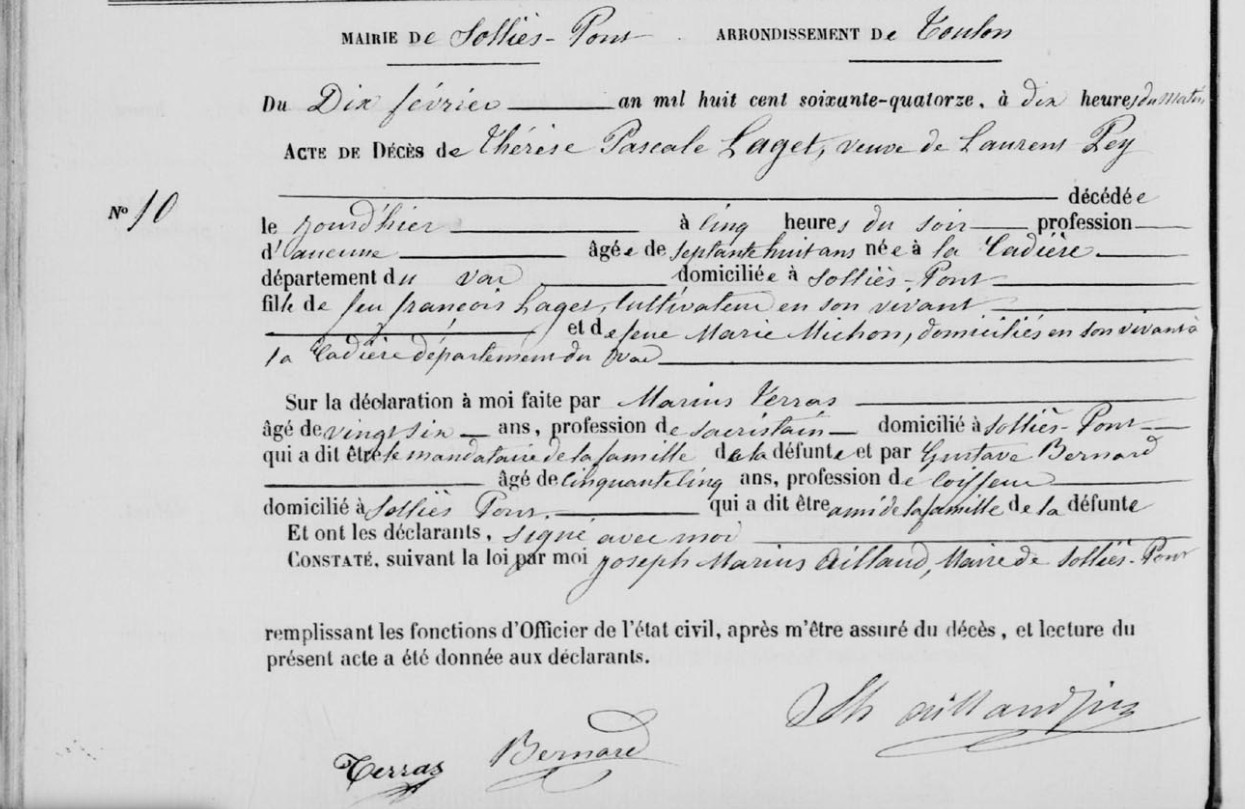 MAIRIE De Solliès-Pont ARRONDISSEMENT De Toulon
Du Dix février an mil huit cent soixante-quatorze, à dix heures du matin
ACTE DE DÉCÈS de Thérèse Pascale Laget, veuve de Laurens Pey
décédée
N° 10
le jourd'hier à Cinq heures du soir profession
d'aucune âgée de septante huit ans née à la Cadière
département du var domiciliée à Solliès-Pont
fille de feu françois Laget, Cultivateur en son vivant
et de feue Marie Michon, domiciliés en son vivant à
la Cadière département du var
Sur la déclaration à moi faite par Marius Terras
âgé de vingt six ans, profession de sacristain domicilié à Solliès-Pont
qui a dit être le mandataire de la famille de la défunte et par Gustave Bernard
âgé de Cinquante Cinq ans, profession de Coiffeur
domicilié à Solliès Pont. qui a dit être ami de la famille de la défunte
Et ont les déclarants, signé avec moi
CONSTATÉ, suivant la loi par moi joseph Marius Aillaud, Maire de Solliès-Pont
remplissant les fonctions d'Officier de l'état civil, après m'être assuré du décès, et lecture du
présent acte a été donnée aux déclarants.
aillaud
Terras Bernard